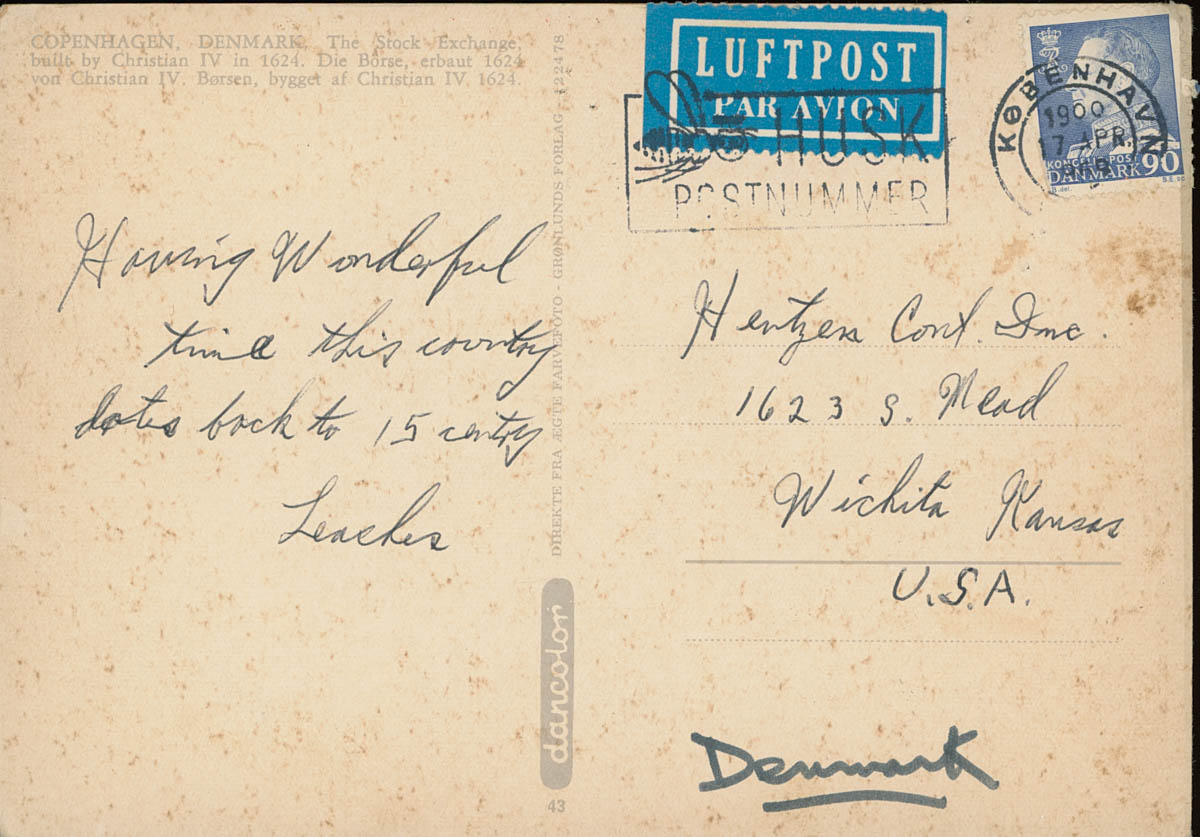 COPENHAGEN, DENMARK. The Stock Exchange,
built by Christian IV in 1624. Die Börse, erbaut 1624
von Christian IV. Børsen, bygget af Christian IV. 1624.
LUFTPOST
PAR AVION
HUSK
POSTNUMMER
KØBENHAVN
1900
17 APR.
KONGELIG POST
DANMARK 90
Having Wonderful
time this country
dates back to 15 centry
Leaches
DIREKTE FRA ÆGTE FARVEFOTO - GRØNLUNDS FORLAG - 122478
dancolor
43
Hentzen Cont. Inc.
1623 S. Mead
Wichita Kansas
U.S.A.
Denmark